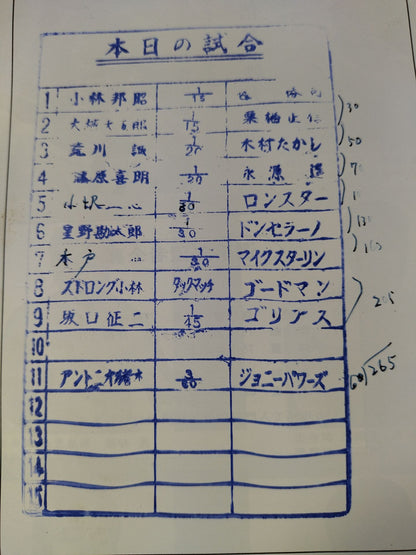 本日の試合
1 小林邦昭 1/15
2 1/15 栗栖正伸
3 荒川 誠 1/20 木村たかし
4 藤原喜明 1/20 永源 遥
5 小沢 1/30 ロンスター
6 星野勘太郎 1/30 ドンセラーノ
7 木戸 1/30 マイクスターリン
8 ストロング小林 タックマッチ ゴードマン
9 坂口征二 1/45 ゴリアス
10
11 アントニオ猪木 3/60 ジョニーパワーズ
12
13
14
15
30
50
60
265